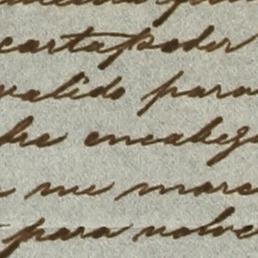 carta poder
valido para
he encabeza
me marc
para volve